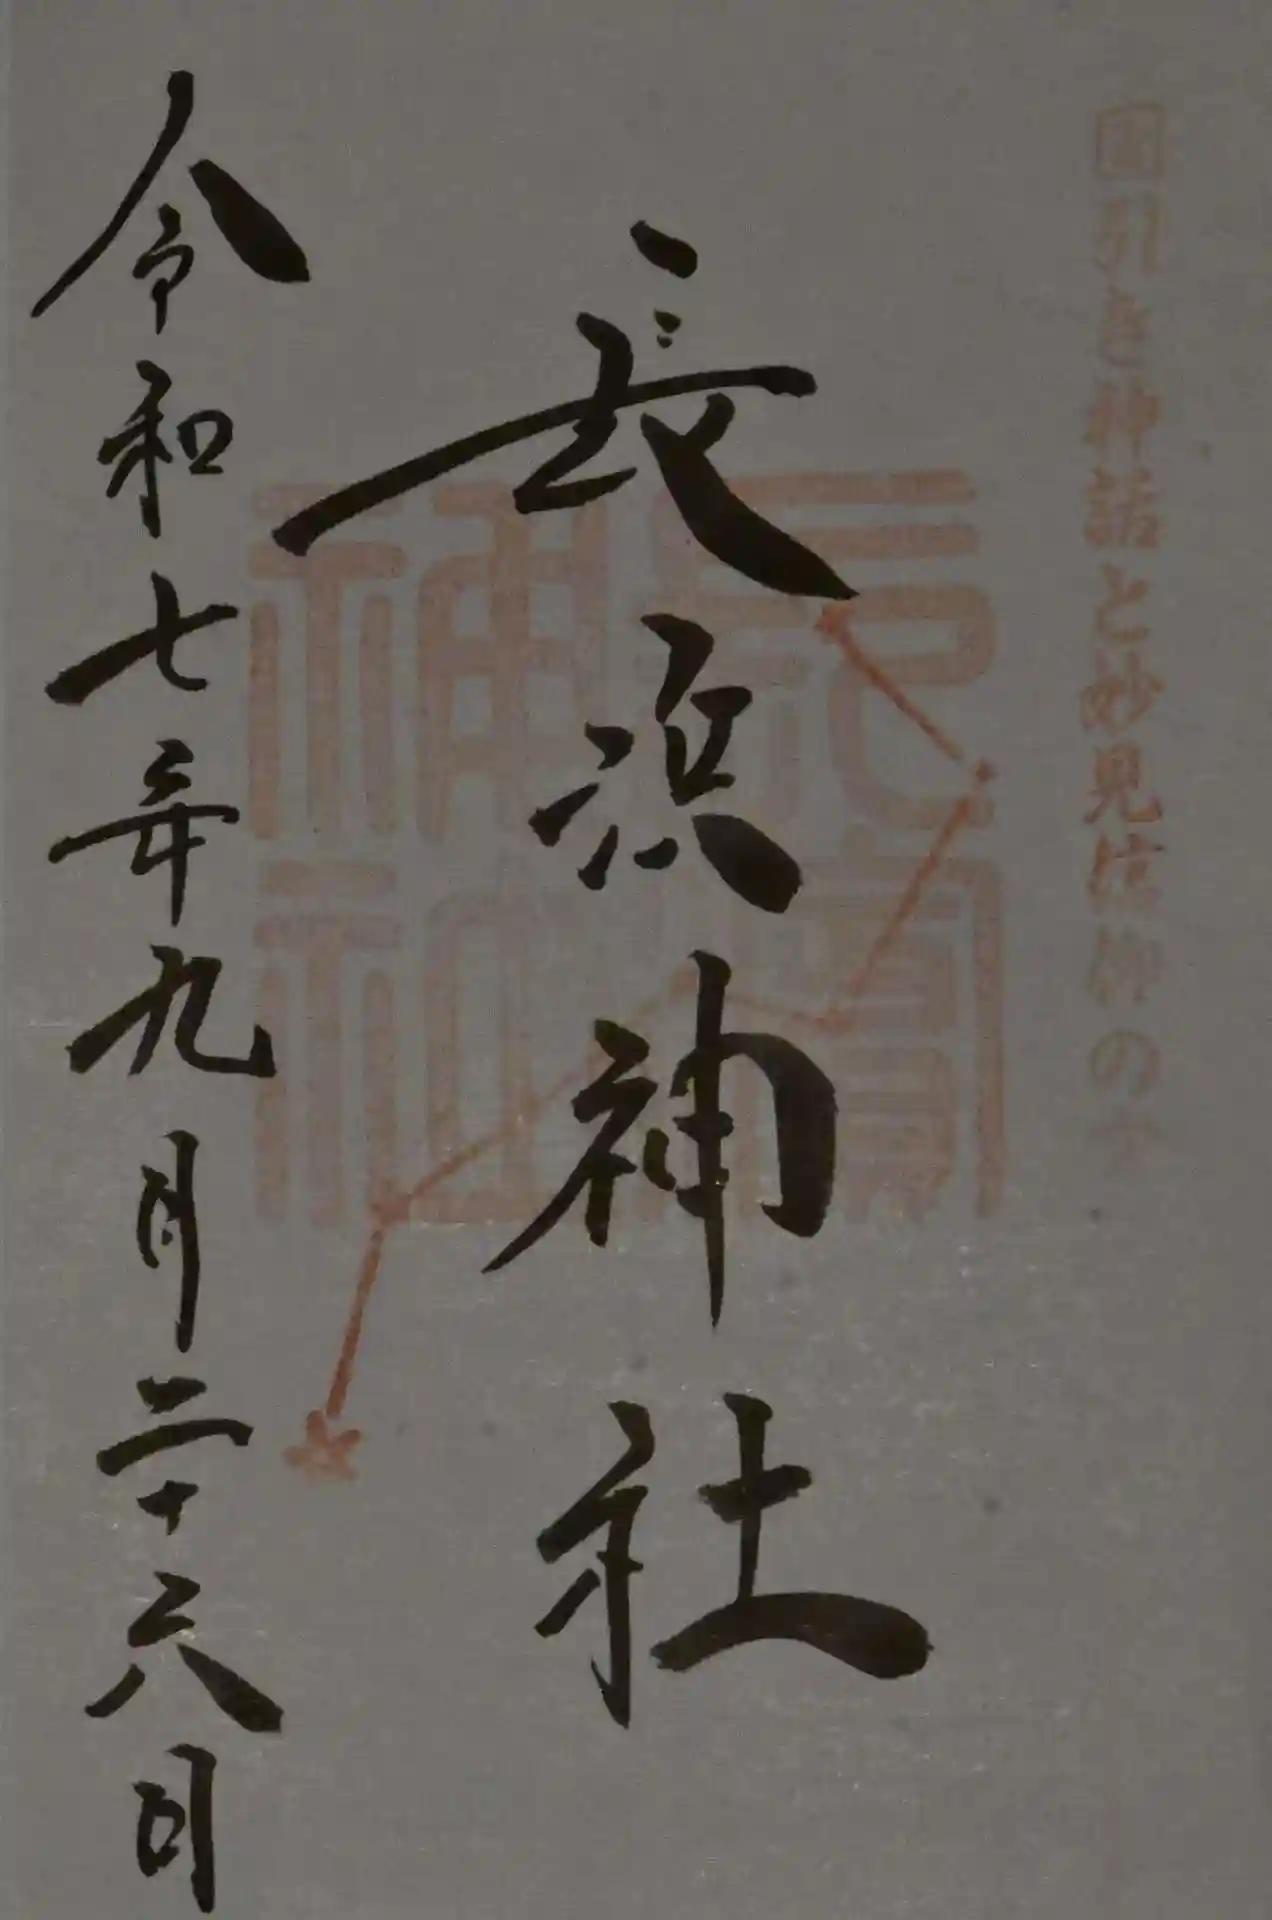 国引き神話と妙見信仰の
長浜神社
令和七年九月二十六日